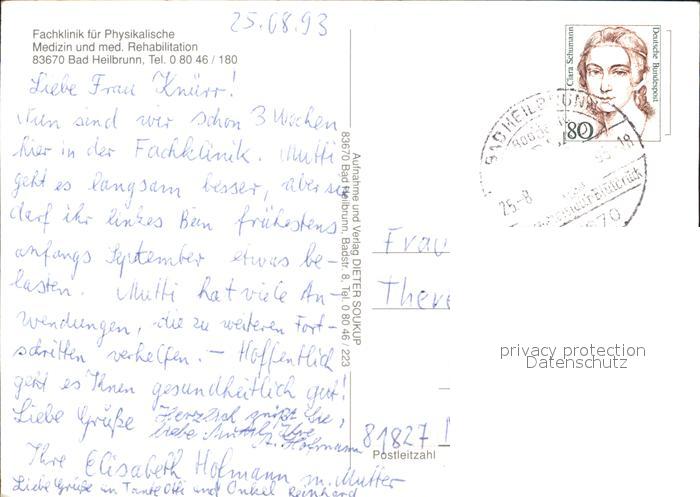 25.08.93
Fachklinik für Physikalische
Medizin und med. Rehabilitation
83670 Bad Heilbrunn, Tel. 0 80 46 / 180
Liebe Frau Knürr!
Nun sind wir schon 3 Wochen
hier in der Fachklinik. Mutti
geht es langsam besser, aber sie
darf ihr linkes Bein frühestens
anfangs September etwas be-
lasten. Mutti hat viele An-
wendungen, die zu weiteren Fort-
schritten verhelfen. – Hoffentlich
geht es Ihnen gesundheitlich gut!
Liebe Grüße
Herzlich grüßt Sie,
Ihre
Hofmann
Ihre Elisabeth Hofmann m. Mutter
Liebe Grüße an Tante Otti und Onkel Reinhard
Aufnahme und Verlag DIETER SOUKUP
83670 Bad Heilbrunn, Badstr. 8, Tel. 0 80 46 / 223
Clara Schumann
Deutsche Bundespost
80
BAD HEILBRUNN
25.-8
83670
Frau
There
81827
Postleitzahl
privacy protection
Datenschutz